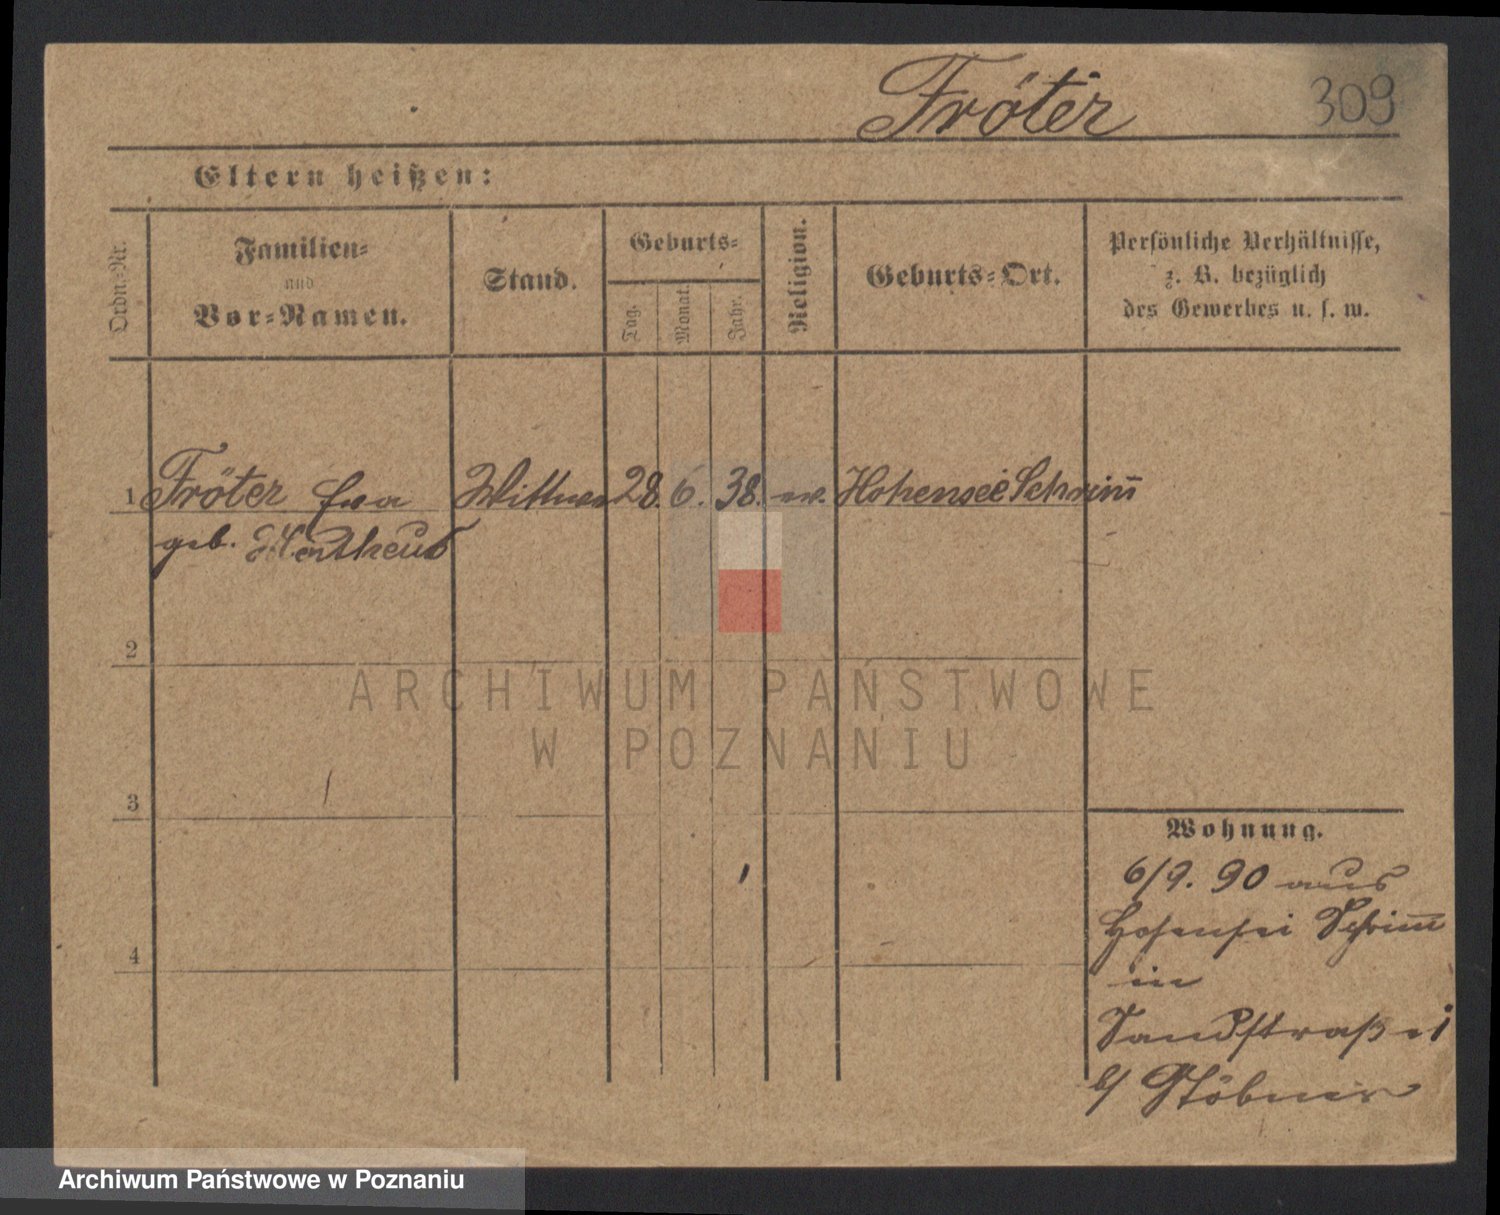 Fröter 309
Eltern heißen:
Ordn.-Nr.
Familien-
und
Vor-Namen.
Stand.
Geburts-
Tag.
Monat.
Jahr.
Religion.
Geburts-Ort.
Persönliche Verhältnisse,
z. B. bezüglich
des Gewerbes u. s. w.
1 Fröter Eva Wittwe 28. 6. 38. ev. Hohensee Schrim̄
geb.
2
3
4
Wohnung.
6/9. 90 aus
Hohensee Schrim̄
in
Sandstraße 1
b/
ARCHIWUM PAŃSTWOWE
W POZNANIU
Archiwum Państwowe w Poznaniu